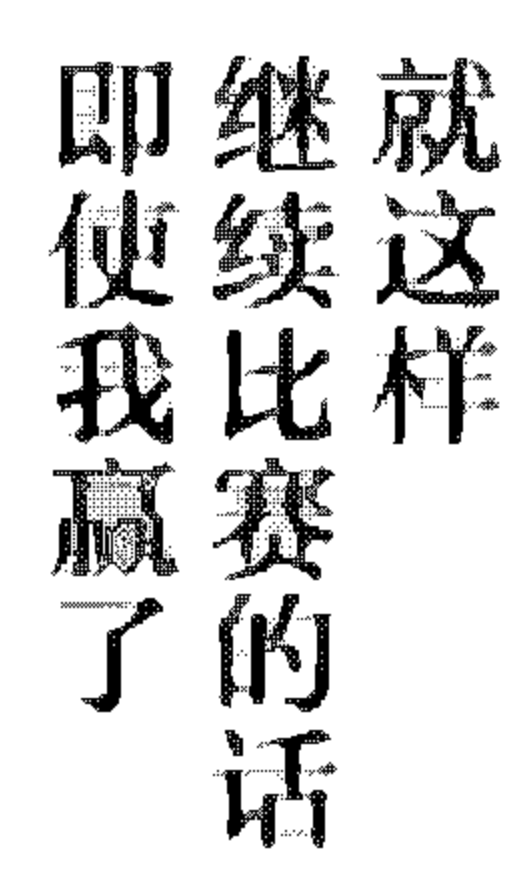 就这样
继续比赛的话
即使我赢了